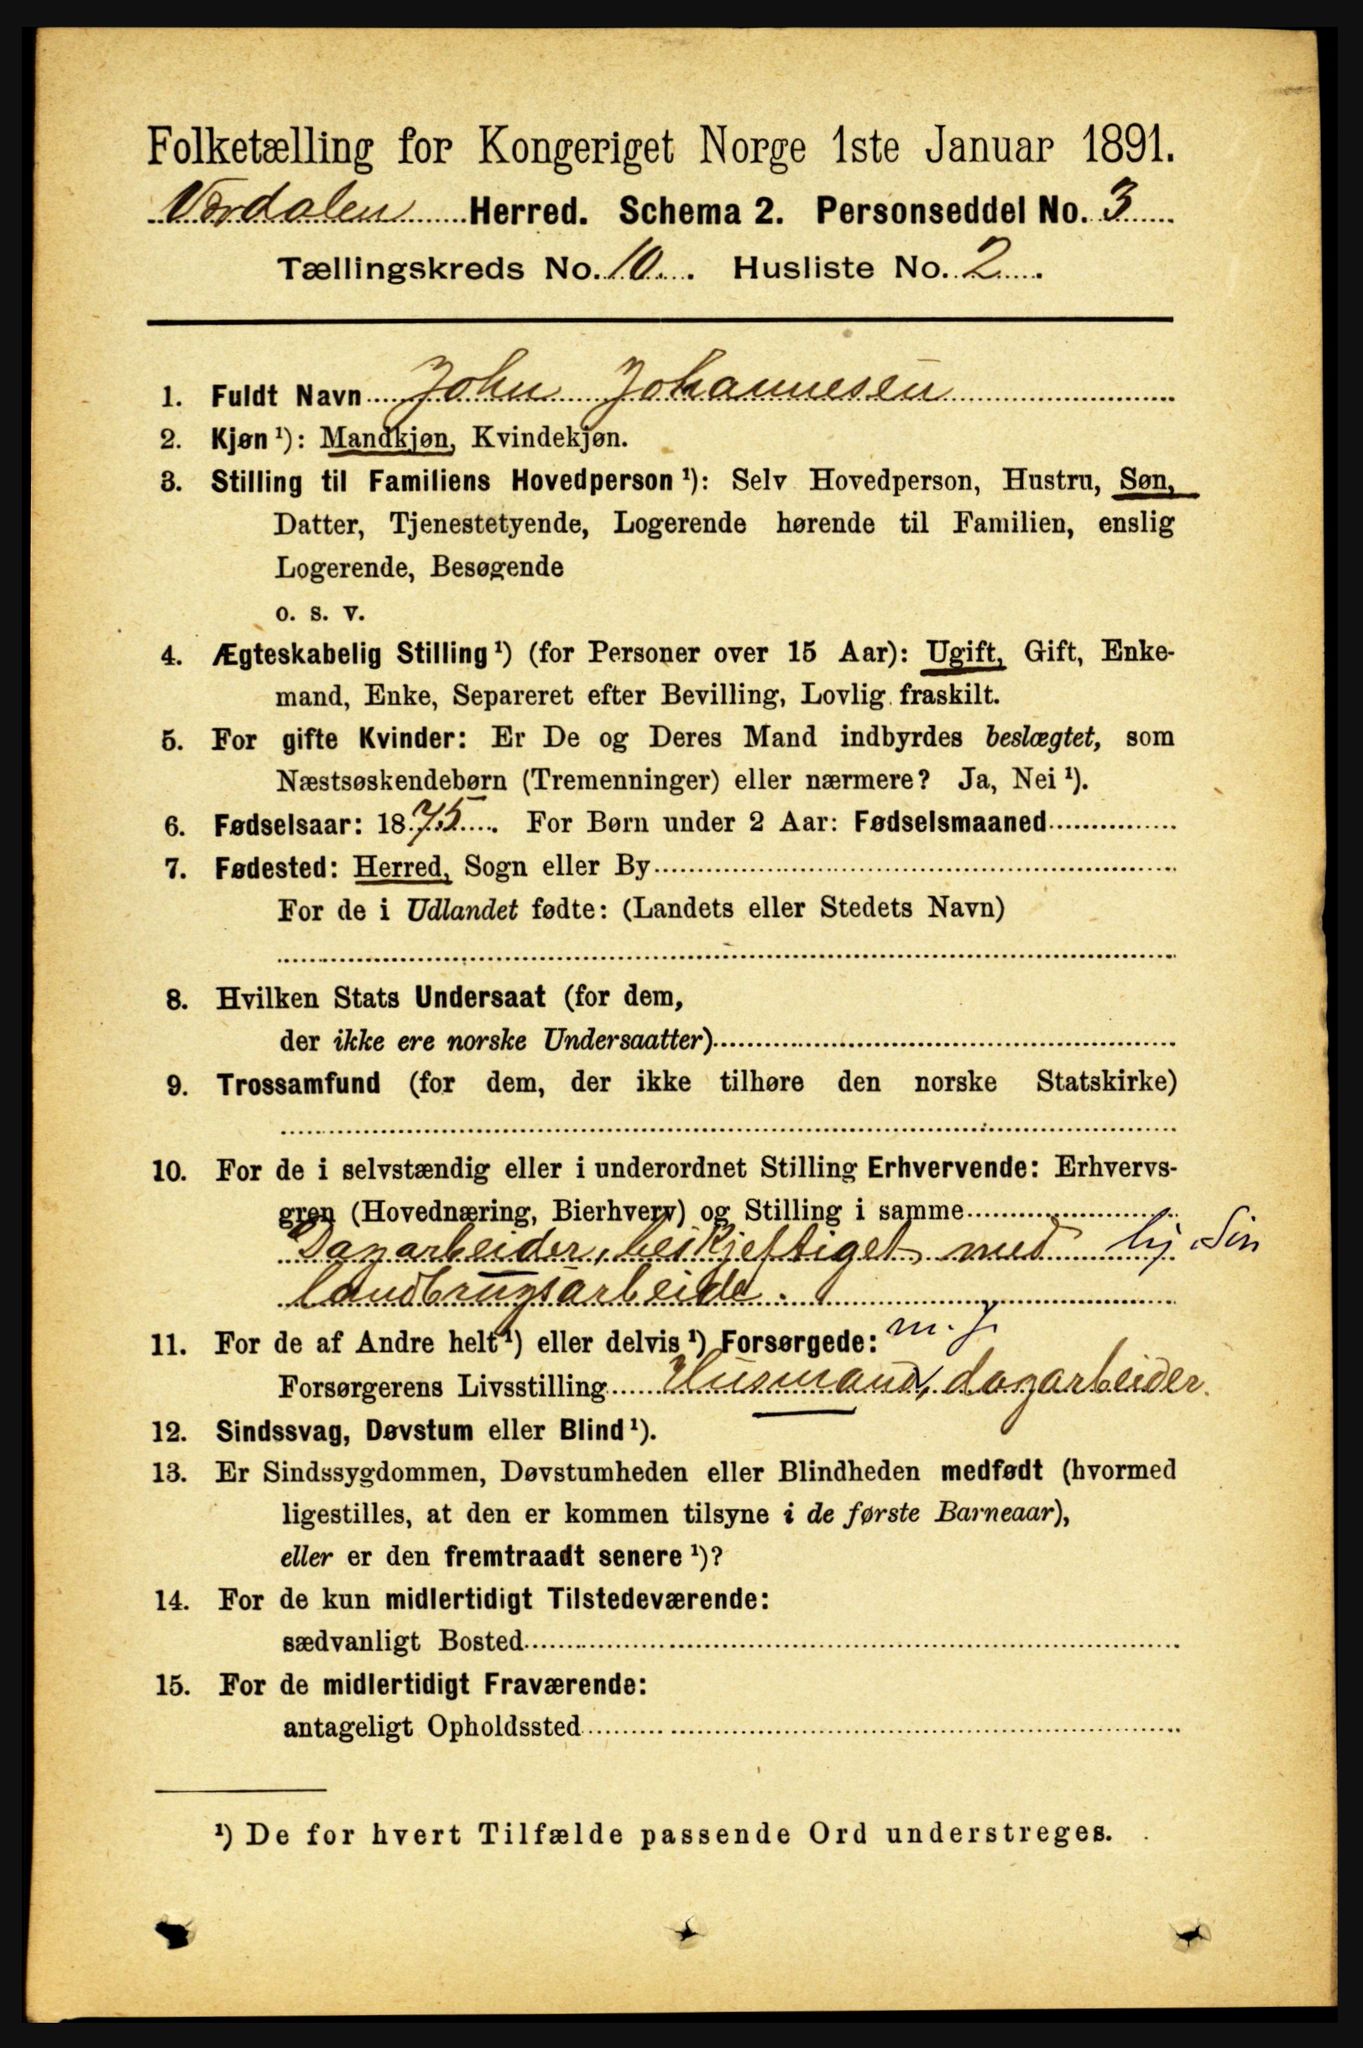 Folketælling for Kongeriget Norge 1ste Januar 1891.
Værdalen Herred. Schema 2. Personseddel No. 3
Tællingskreds No. 10. Husliste No. 2.
1. Fuldt Navn John Johannesen
2. Kjøn ¹): Mandkjøn, Kvindekjøn.
3. Stilling til Familiens Hovedperson ¹): Selv Hovedperson, Hustru, Søn,
Datter, Tjenestetyende, Logerende hørende til Familien, enslig
Logerende, Besøgende
o. s. v.
4. Ægteskabelig Stilling ¹) (for Personer over 15 Aar): Ugift, Gift, Enke-
mand, Enke, Separeret efter Bevilling, Lovlig fraskilt.
5. For gifte Kvinder: Er De og Deres Mand indbyrdes beslægtet, som
Næstsøskendebørn (Tremenninger) eller nærmere? Ja, Nei ¹).
6. Fødselsaar: 1875. For Børn under 2 Aar: Fødselsmaaned
7. Fødested: Herred, Sogn eller By
For de i Udlandet fødte: (Landets eller Stedets Navn)
8. Hvilken Stats Undersaat (for dem,
der ikke ere norske Undersaatter)
9. Trossamfund (for dem, der ikke tilhøre den norske Statskirke)
10. For de i selvstændig eller i underordnet Stilling Erhvervende: Erhvervs-
gren (Hovednæring, Bierhverv) og Stilling i samme
Dagarbeider, beskjeftiget med
landbrugsarbeide.
11. For de af Andre helt ¹) eller delvis ¹) Forsørgede: m. j
Forsørgerens Livsstilling Husmand, dagarbeider.
12. Sindssvag, Døvstum eller Blind ¹).
13. Er Sindssygdommen, Døvstumheden eller Blindheden medfødt (hvormed
ligestilles, at den er kommen tilsyne i de første Barneaar),
eller er den fremtraadt senere ¹)?
14. For de kun midlertidigt Tilstedeværende:
sædvanligt Bosted
15. For de midlertidigt Fraværende:
antageligt Opholdssted
¹) De for hvert Tilfælde passende Ord understreges.